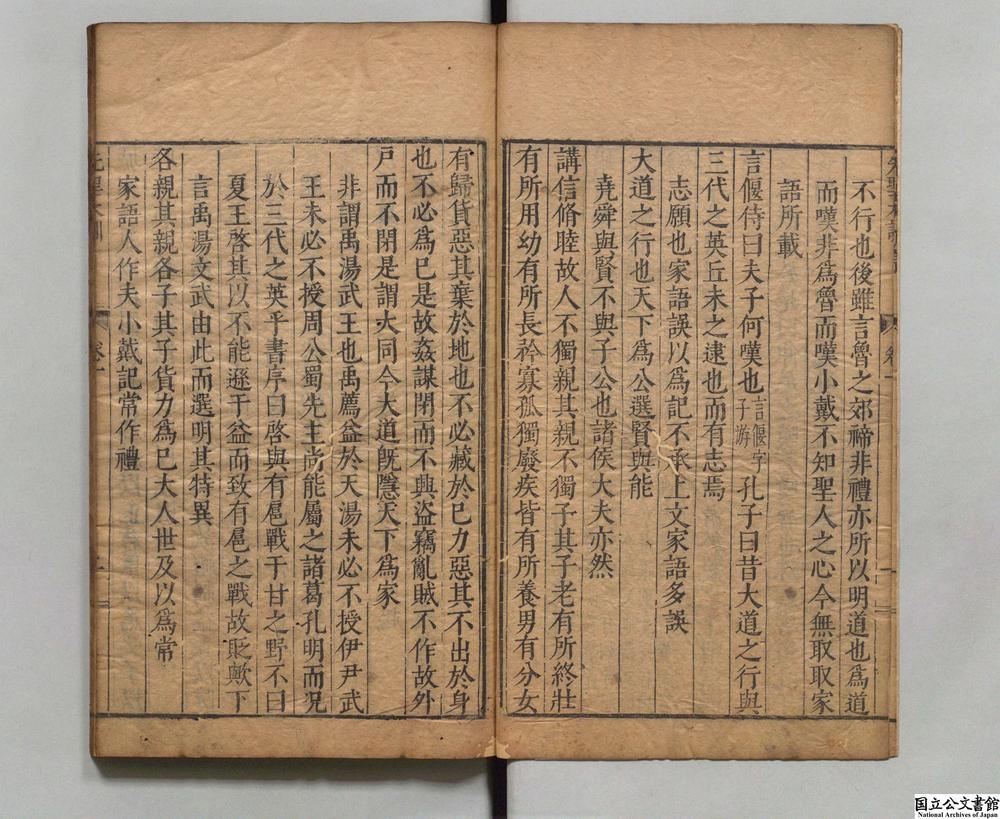 不行也後雖言魯之郊禘非禮亦所以明道也爲道
而嘆非爲魯而嘆小戴不知聖人之心今無取取家
語所載
言偃侍曰夫子何嘆也言偃字子游孔子曰昔大道之行與
三代之英丘未之逮也而有志焉
志願也家語誤以爲記不承上文家語多誤
大道之行也天下爲公選賢與能
堯舜與賢不與子公也諸侯大夫亦然
講信脩睦故人不獨親其親不獨子其子老有所終壯
有所用幼有所長矜寡孤獨廢疾皆有所養男有分女
有歸貨惡其棄於地也不必藏於已力惡其不出於身
也不必爲已是故姦謀閉而不興盜竊亂賊不作故外
戸而不閉是謂大同今大道旣隱天下爲家
非謂禹湯武王也禹薦益於天湯未必不授伊尹武
王未必不授周公蜀先主尚能屬之諸葛孔明而况
於三代之英乎書序曰啓與有扈戰于甘之野不曰
夏王啓其以不能遜于益而致有扈之戰故貶歟下
言禹湯文武由此而選明其特異
各親其親各子其子貨力爲已大人世及以爲常
家語人作夫小戴記常作禮
卷一
二
卷一
一
国立公文書館
National Archives of Japan